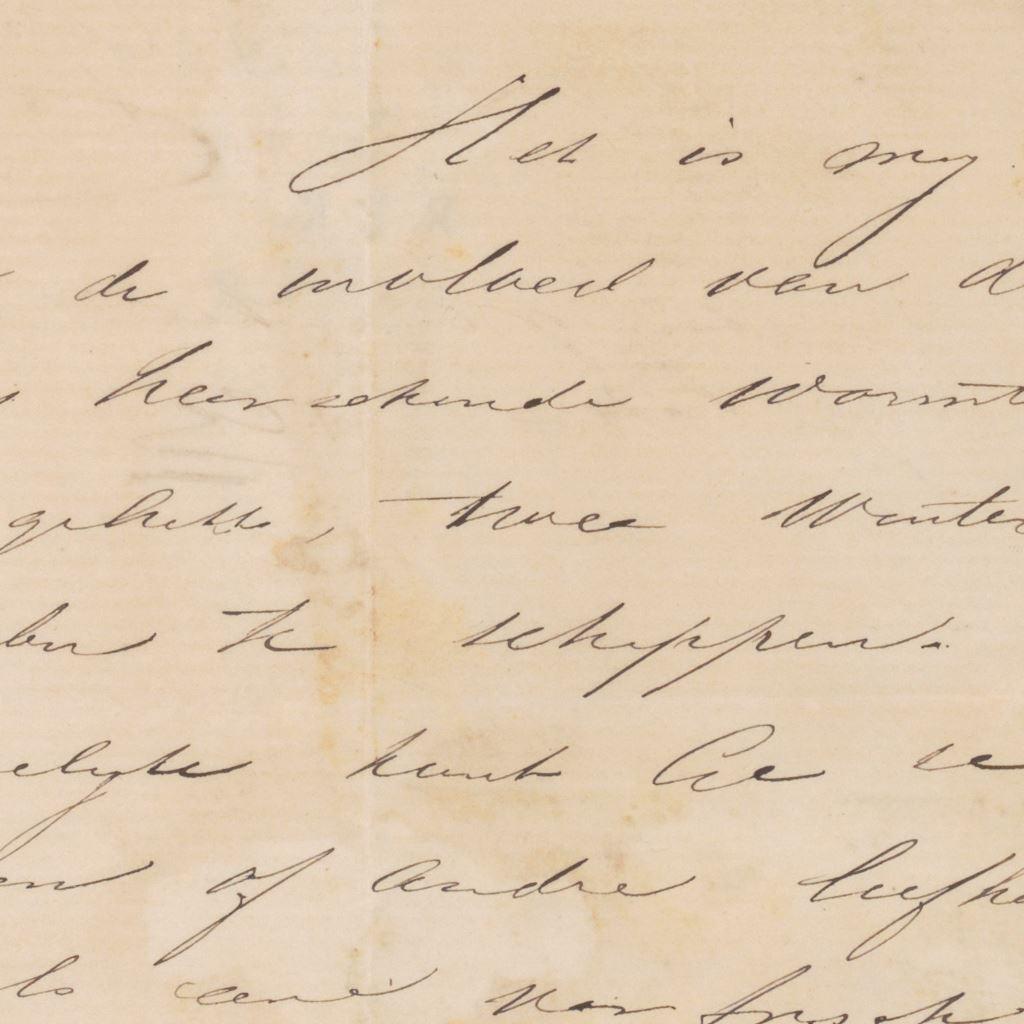 Het is my
de invloed van d
heerschende warmt
gelukte, twee Winter
ben te scheppen.
elyke kunt Ge
en of andre liefhe
ls eene